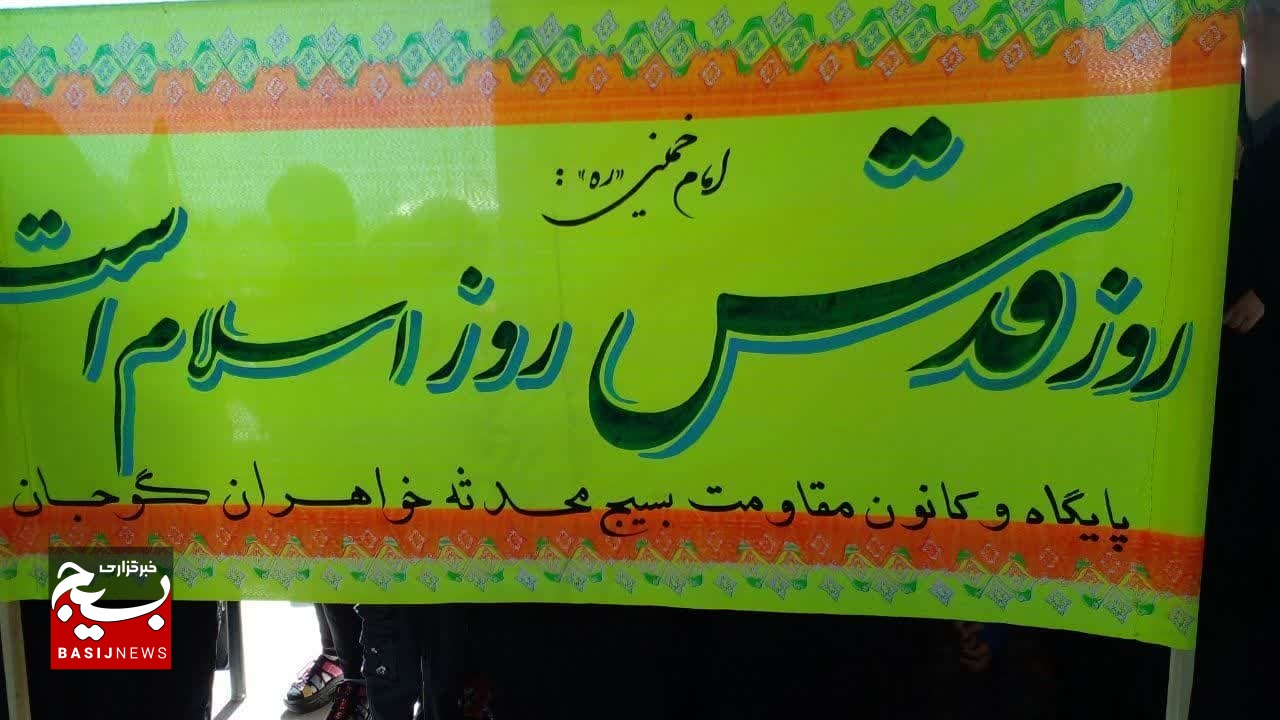 امام خمینی «ره» :
روز قدس روز اسلام است
پایگاه و کانون مقاومت بسیج محدثه خواهران گوجان
خبرگزاری
بسیج
BASIJNEWS